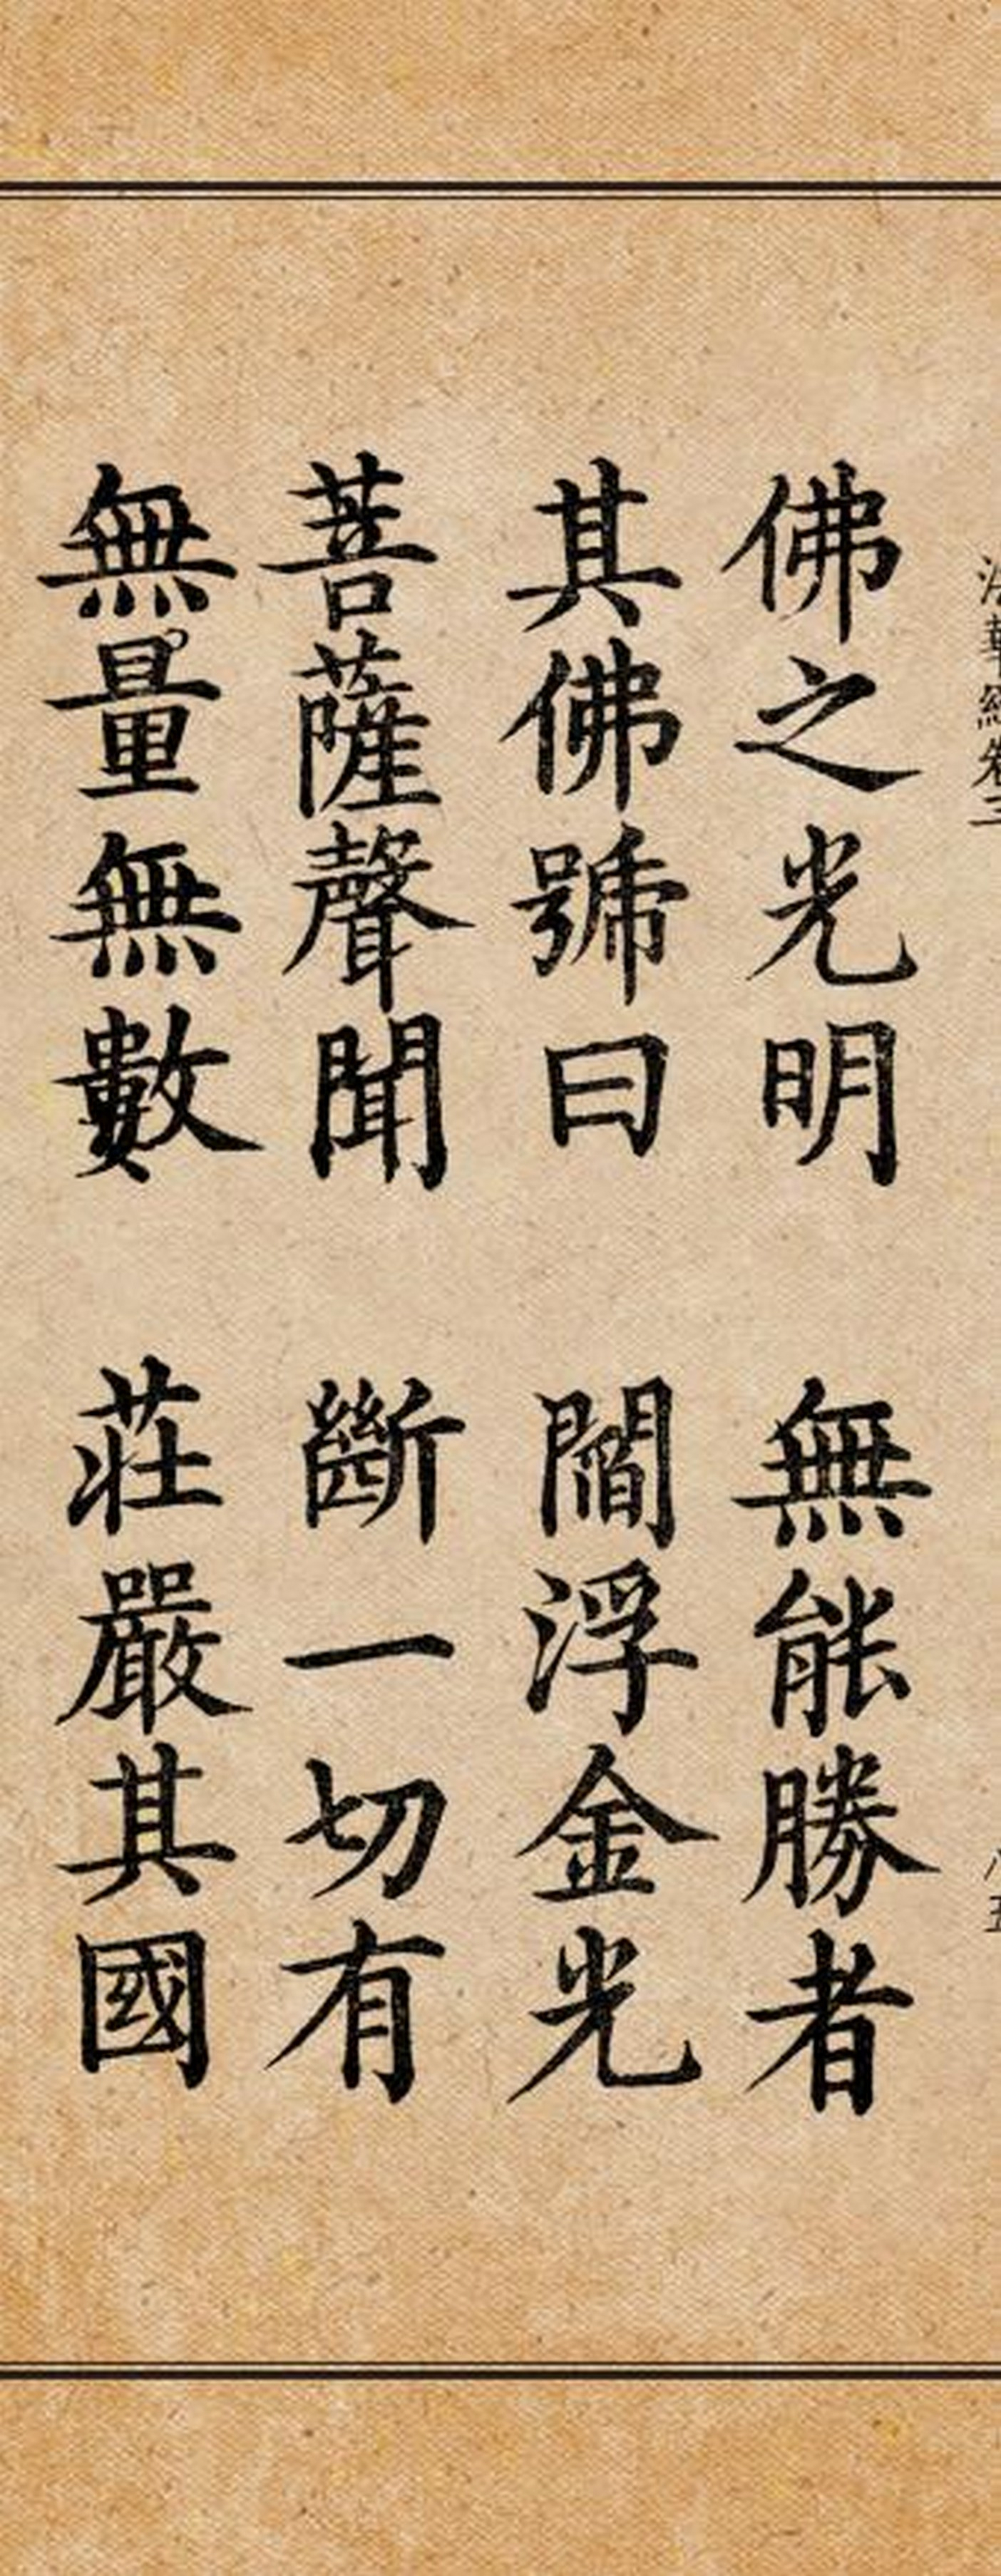 法華經卷三
佛之光明 無能勝者
其佛號曰 閻浮金光
菩薩聲聞 斷一切有
無量無數 莊嚴其國